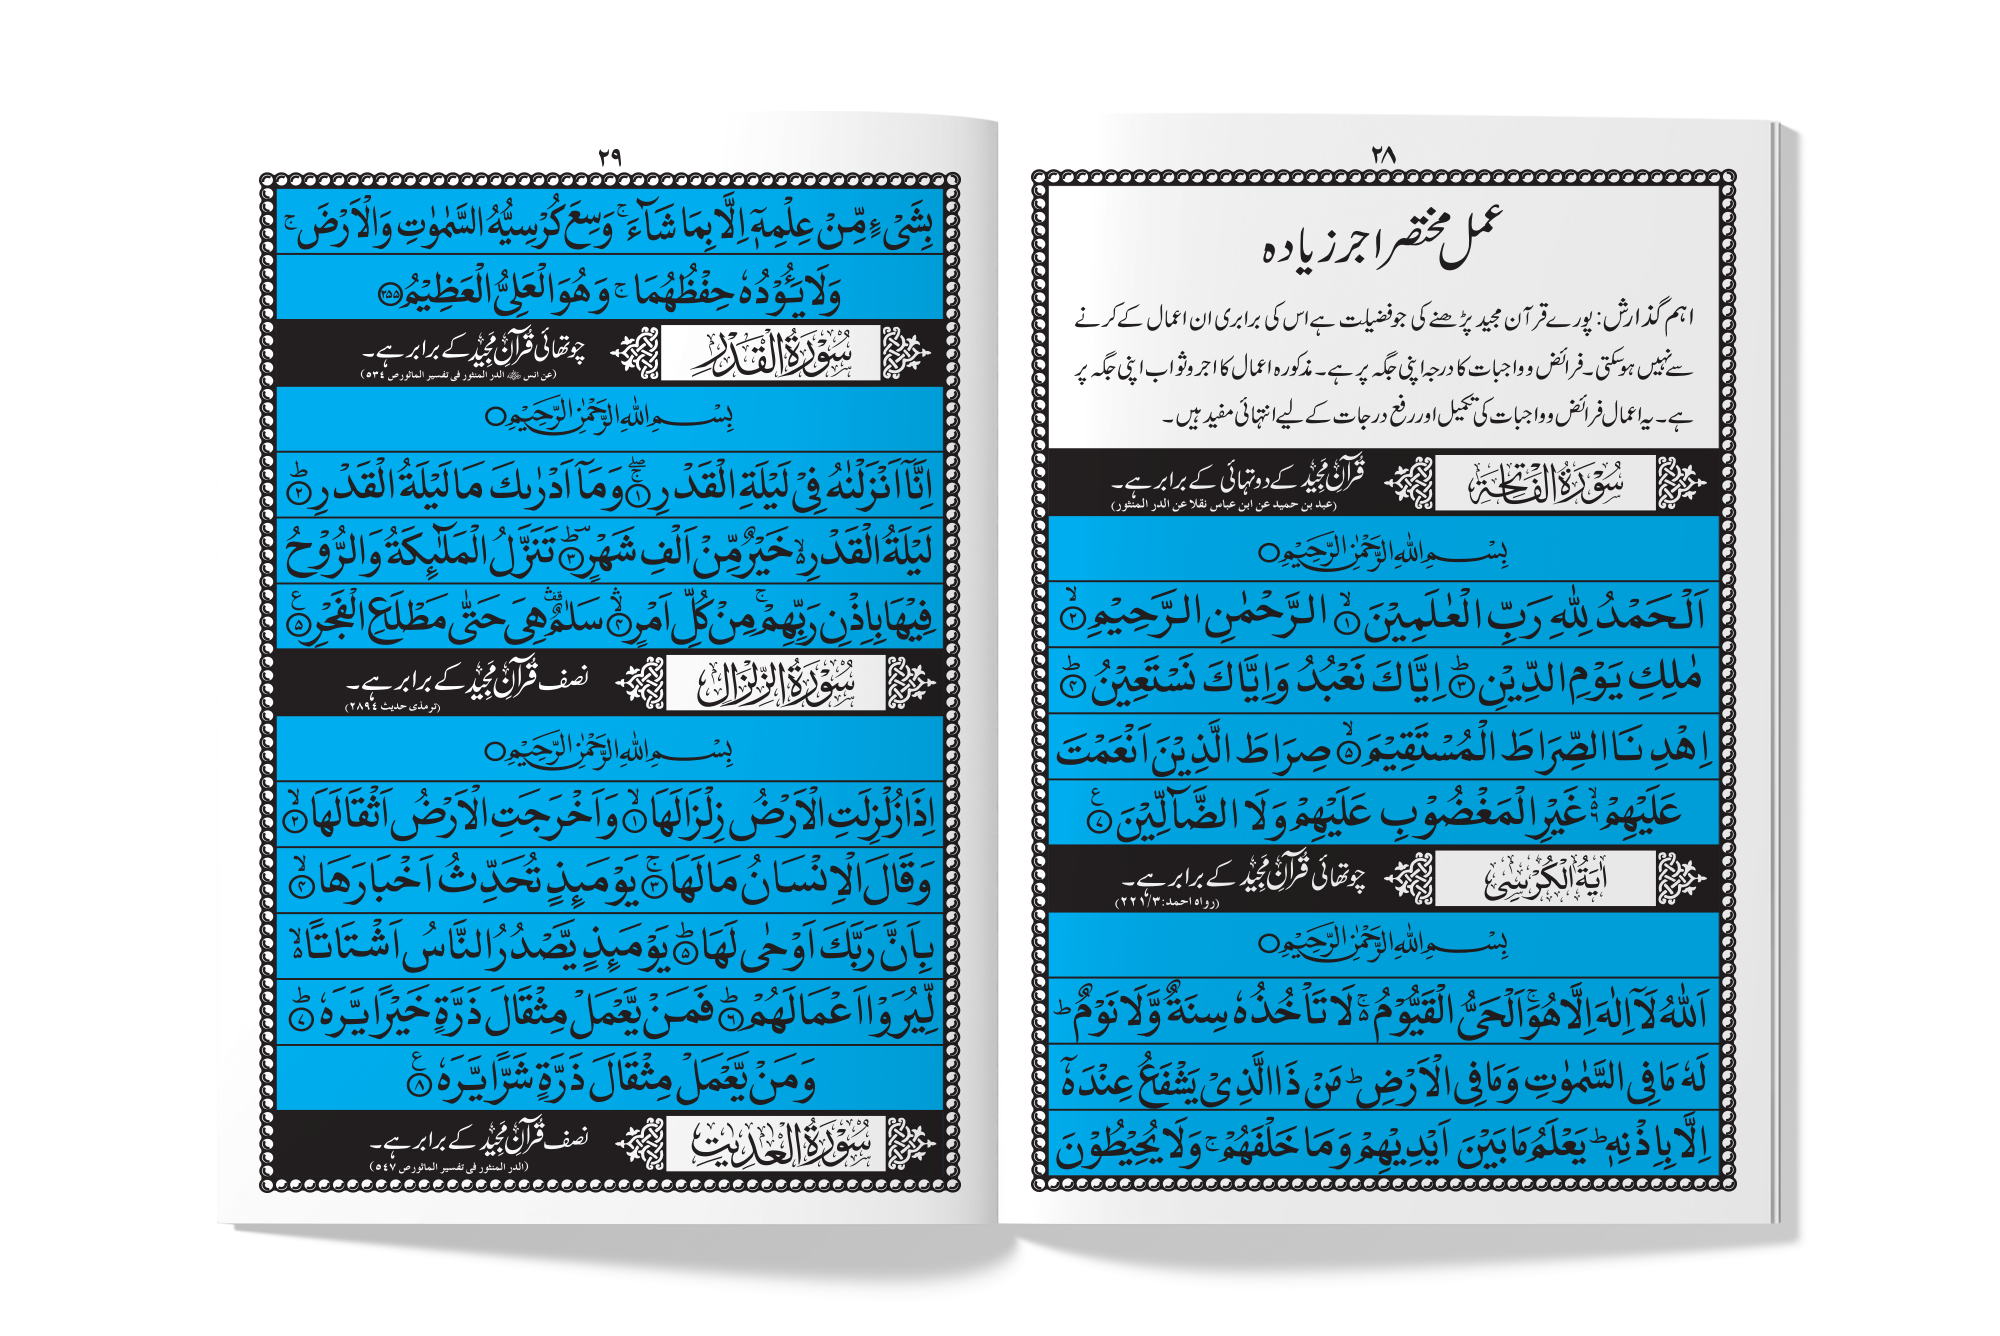 ٢٨
عمل مختصر اجر زیادہ
اہم گذارش: پورے قرآن مجید پڑھنے کی جو فضیلت ہے اس کی برابری ان اعمال کے کرنے
سے نہیں ہو سکتی۔ فرائض و واجبات کا درجہ اپنی جگہ پر ہے۔ مذکورہ اعمال کا اجر و ثواب اپنی جگہ پر
ہے۔ یہ اعمال فرائض و واجبات کی تکمیل اور رفع درجات کے لیے انتہائی مفید ہیں۔
سُوْرَۃُ الْفَاتِحَۃ قُرآن مَجِید کے دو تہائی کے برابر ہے۔
(عبد بن حميد عن ابن عباس نقلا عن الدر المنثور)
بِسْمِ اللّٰهِ الرَّحْمٰنِ الرَّحِيْمِ ○
اَلْحَمْدُ لِلّٰهِ رَبِّ الْعٰلَمِيْنَ ۙ﴿١﴾ الرَّحْمٰنِ الرَّحِيْمِ ۙ﴿٢﴾
مٰلِكِ يَوْمِ الدِّيْنِ ؕ﴿٣﴾ اِيَّاكَ نَعْبُدُ وَاِيَّاكَ نَسْتَعِيْنُ ؕ﴿۴﴾
اِهْدِنَا الصِّرَاطَ الْمُسْتَقِيْمَ ۙ﴿۵﴾ صِرَاطَ الَّذِيْنَ اَنْعَمْتَ
عَلَيْهِمْ ۙ۬ غَيْرِ الْمَغْضُوْبِ عَلَيْهِمْ وَلَا الضَّآلِّيْنَ ﴿٧﴾ ع
اٰيَةُ الْكُرْسِی چوتھائی قُرآن مَجِید کے برابر ہے۔
(رواه احمد: ٢٢١/٣)
بِسْمِ اللّٰهِ الرَّحْمٰنِ الرَّحِيْمِ ○
اَللّٰهُ لَاۤ اِلٰهَ اِلَّا هُوَ ۚ اَلْحَيُّ الْقَيُّوْمُ ۬ۚ لَا تَاْخُذُهٗ سِنَةٌ وَّلَا نَوْمٌ ؕ
لَهٗ مَا فِى السَّمٰوٰتِ وَمَا فِى الْاَرْضِ ؕ مَنْ ذَا الَّذِىْ يَشْفَعُ عِنْدَهٗۤ
اِلَّا بِاِذْنِهٖ ؕ يَعْلَمُ مَا بَيْنَ اَيْدِيْهِمْ وَمَا خَلْفَهُمْ ۚ وَلَا يُحِيْطُوْنَ
٢٩
بِشَىْءٍ مِّنْ عِلْمِهٖۤ اِلَّا بِمَا شَآءَ ۚ وَسِعَ كُرْسِيُّهُ السَّمٰوٰتِ وَالْاَرْضَ ۚ
وَلَا يَـُٔوْدُهٗ حِفْظُهُمَا ۚ وَهُوَ الْعَلِىُّ الْعَظِيْمُ ﴿٢۵۵﴾
سُوْرَۃُ الْقَدْر چوتھائی قُرآن مَجِید کے برابر ہے۔
(عن انس ؓ الدر المنثور فى تفسير الماثور ص ٥٣٤)
بِسْمِ اللّٰهِ الرَّحْمٰنِ الرَّحِيْمِ ○
اِنَّاۤ اَنْزَلْنٰهُ فِىْ لَيْلَةِ الْقَدْرِ ۖۚ﴿١﴾ وَمَاۤ اَدْرٰىكَ مَا لَيْلَةُ الْقَدْرِ ؕ﴿٢﴾
لَيْلَةُ الْقَدْرِ ۙ۬ خَيْرٌ مِّنْ اَلْفِ شَهْرٍ ؕ﴿٣﴾ تَنَزَّلُ الْمَلٰٓٮِٕكَةُ وَالرُّوْحُ
فِيْهَا بِاِذْنِ رَبِّهِمْ ۚ مِنْ كُلِّ اَمْرٍ ۙ﴿۴﴾ سَلٰمٌ ۛ هِىَ حَتّٰى مَطْلَعِ الْفَجْرِ ﴿۵﴾ ع
سُوْرَۃُ الزِّلْزَال نصف قُرآن مَجِید کے برابر ہے۔
(ترمذى حديث ٢٨٩٤)
بِسْمِ اللّٰهِ الرَّحْمٰنِ الرَّحِيْمِ ○
اِذَا زُلْزِلَتِ الْاَرْضُ زِلْزَالَهَا ۙ﴿١﴾ وَاَخْرَجَتِ الْاَرْضُ اَثْقَالَهَا ۙ﴿٢﴾
وَقَالَ الْاِنْسَانُ مَا لَهَا ۚ﴿٣﴾ يَوْمَٮِٕذٍ تُحَدِّثُ اَخْبَارَهَا ۙ﴿۴﴾
بِاَنَّ رَبَّكَ اَوْحٰى لَهَا ؕ﴿۵﴾ يَوْمَٮِٕذٍ يَّصْدُرُ النَّاسُ اَشْتَاتًا ۙ۬
لِّيُرَوْا اَعْمَالَهُمْ ؕ﴿۶﴾ فَمَنْ يَّعْمَلْ مِثْقَالَ ذَرَّةٍ خَيْرًا يَّرَهٗ ؕ﴿٧﴾
وَمَنْ يَّعْمَلْ مِثْقَالَ ذَرَّةٍ شَرًّا يَّرَهٗ ﴿٨﴾ ع
سُوْرَۃُ الْعٰدِيٰت نصف قُرآن مَجِید کے برابر ہے۔
(الدر المنثور فى تفسير الماثور ص ٥٤٧)